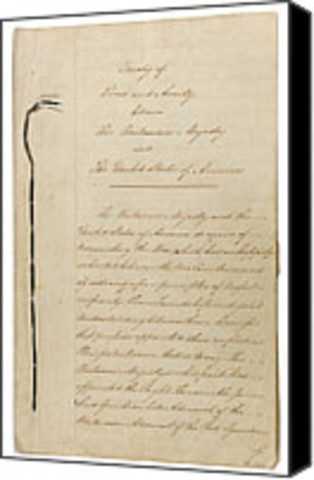 Treaty of
Peace and Amity
between
His Britannic Majesty
and
The United States of America
His Britannic Majesty and the
United States of America desirous of
terminating the War which has unhappily
subsisted between the two Countries and
of restoring upon principles of perfect
reciprocity Peace Friendship and good
Understanding between them, have for
that purpose appointed their respective
Plenipotentiaries that is to say, His
Britannic Majesty on his part has
appointed the Right Honourable James
Lord Gambier late Admiral of the
Admiral of the Red Squadron